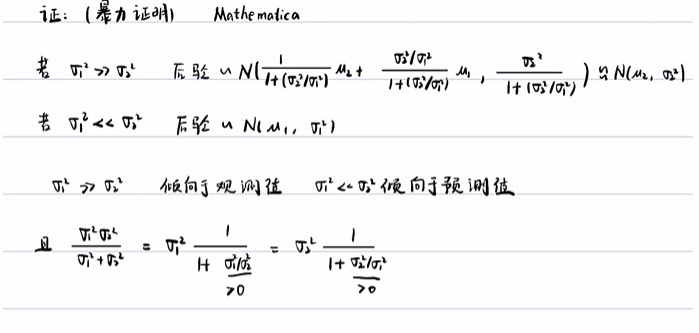 证:(暴力证明) Mathematica
若 σ₁² >> σ₂² 后验 ~ N(1/(1+(σ₂²/σ₁²)) μ₂ + (σ₂²/σ₁²)/(1+(σ₂²/σ₁²)) μ₁, σ₂²/(1+(σ₂²/σ₁²))) ≈ N(μ₂, σ₂²)
若 σ₁² << σ₂² 后验 ~ N(μ₁, σ₁²)
σ₁² >> σ₂² 倾向于观测值 σ₁² << σ₂² 倾向于预测值
且 σ₁²σ₂²/(σ₁²+σ₂²) = σ₁² 1/(1+σ₁²/σ₂²) = σ₂² 1/(1+σ₂²/σ₁²)
>0 >0